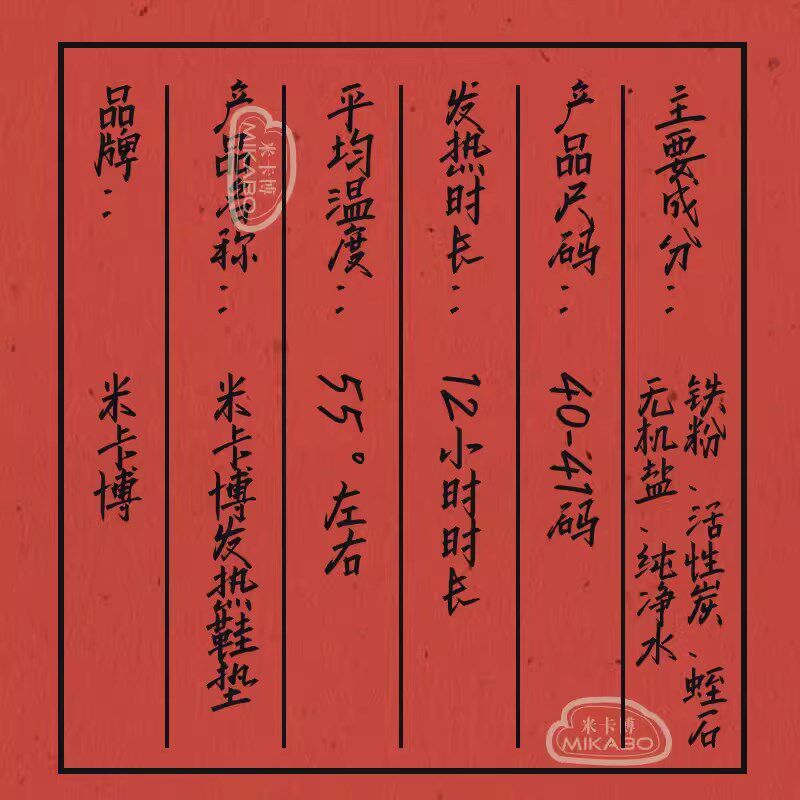 主要成分：
铁粉、活性炭、蛭石
无机盐、纯净水
产品尺码：
40-41码
发热时长：
12小时时长
平均温度：
55°左右
产品名称：
米卡博发热鞋垫
品牌：
米卡博
米卡博
MIKABO
米卡博
MIKABO